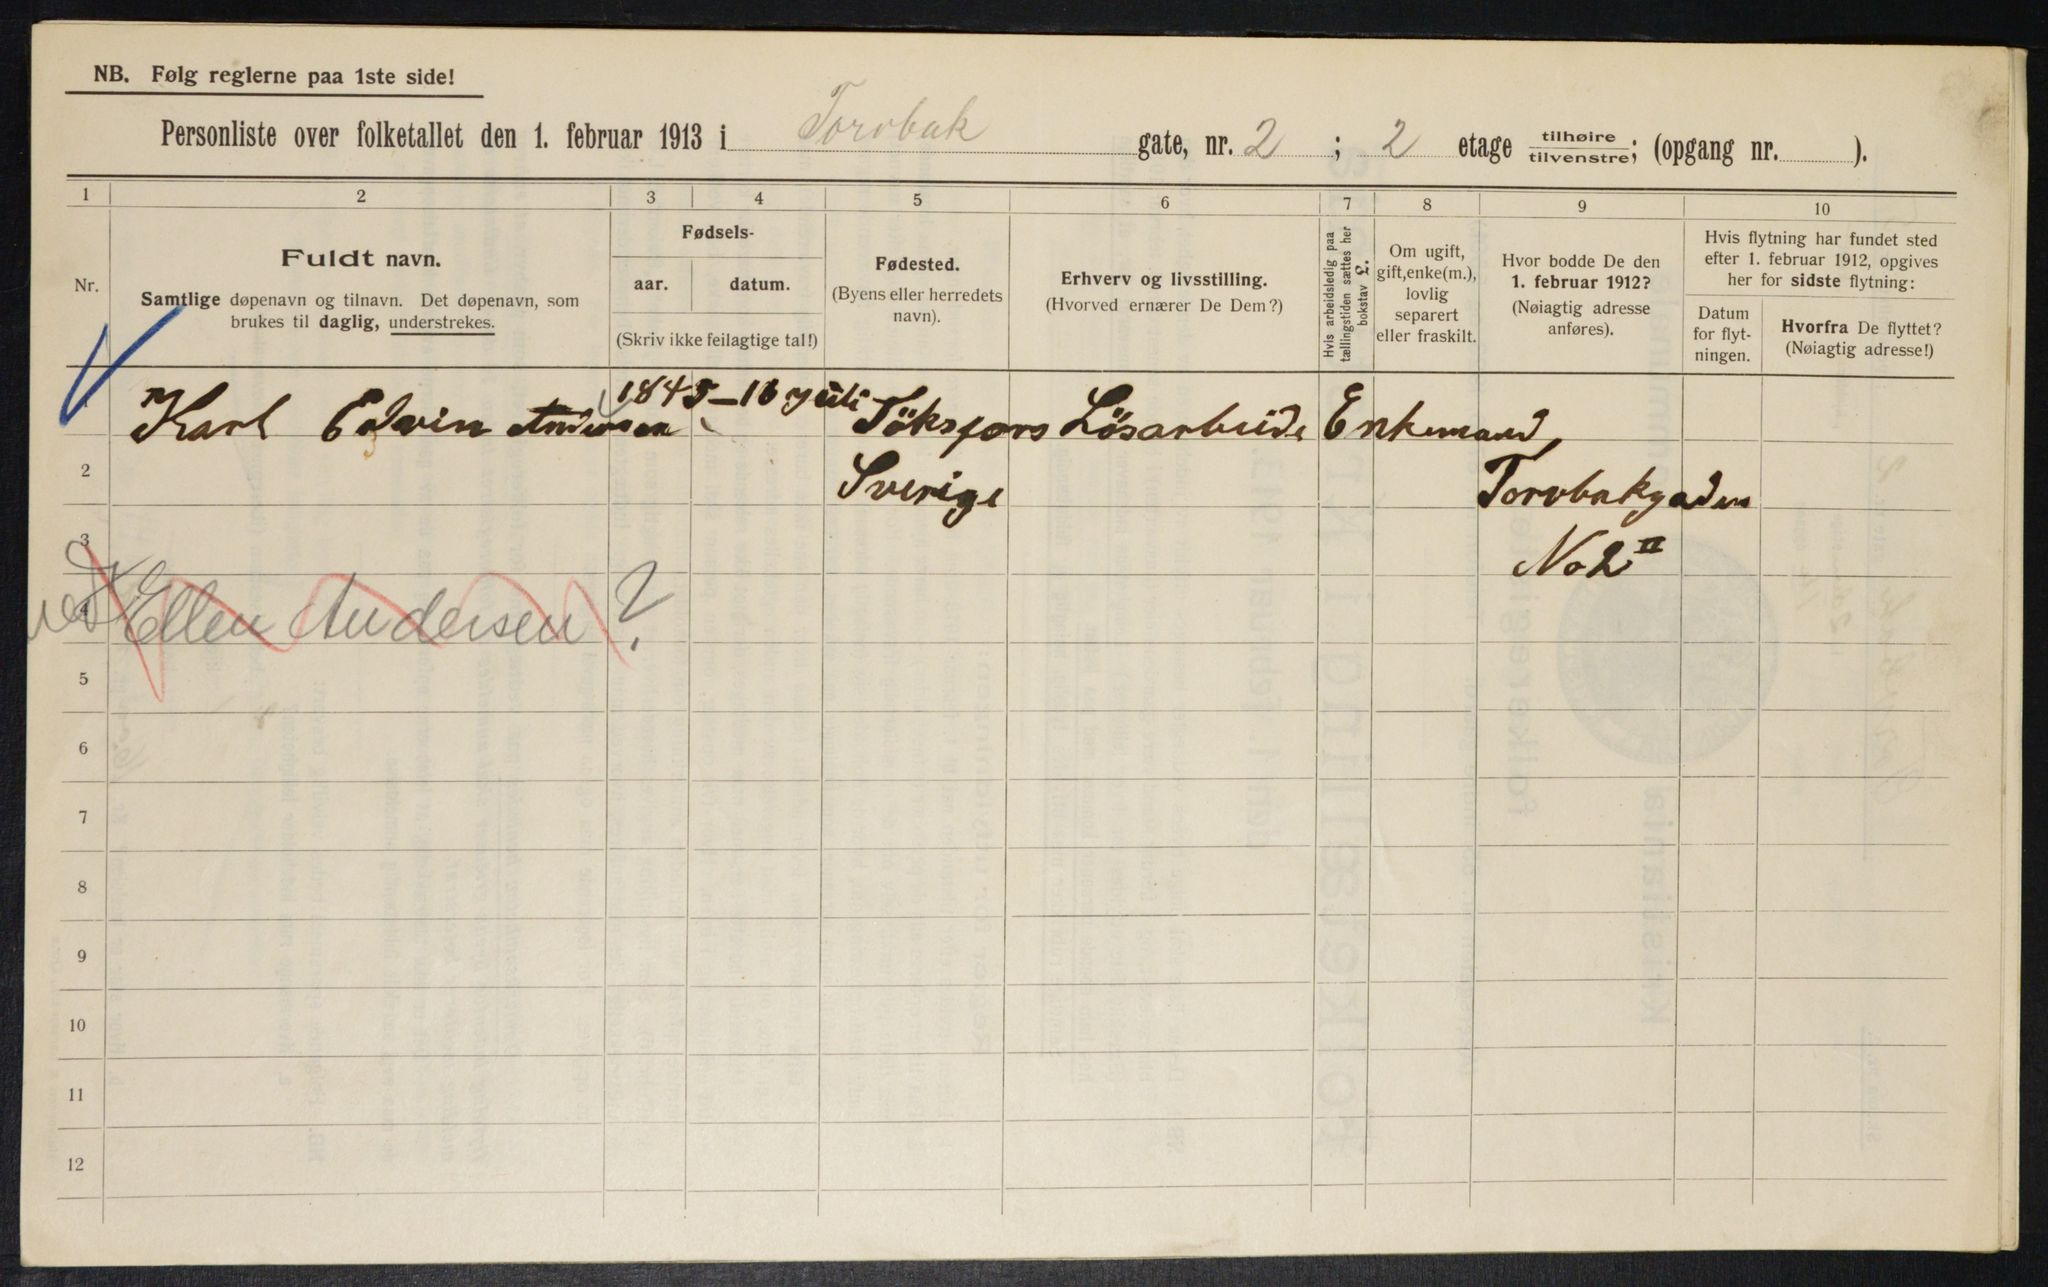 NB. Følg reglerne paa 1ste side!
Personliste over folketallet den 1. februar 1913 i Torvbak gate, nr. 2 ; 2 etage tilhøire/tilvenstre; (opgang nr. ).
1 2 3 4 5 6 7 8 9 10
Nr.
Fuldt navn.
Samtlige døpenavn og tilnavn. Det døpenavn, som
brukes til daglig, understrekes.
Fødsels-
aar. datum.
(Skriv ikke feilagtige tal!)
Fødested.
(Byens eller herredets
navn).
Erhverv og livsstilling.
(Hvorved ernærer De Dem?)
Hvis arbeidsledig paa
tællingstiden sættes her
bokstav L.
Om ugift,
gift, enke(m.),
lovlig
separert
eller fraskilt.
Hvor bodde De den
1. februar 1912?
(Nøiagtig adresse
anføres).
Hvis flytning har fundet sted
efter 1. februar 1912, opgives
her for sidste flytning:
Datum
for flyt-
ningen.
Hvorfra De flyttet?
(Nøiagtig adresse!)
1 Karl Edvin Andersen 1845-16 juli Töksfors Lösarbeide Enkemand,
2 Sverige Torvbakgaden
3 No 2 II
4 Ellen Andersen ?
5
6
7
8
9
10
11
12